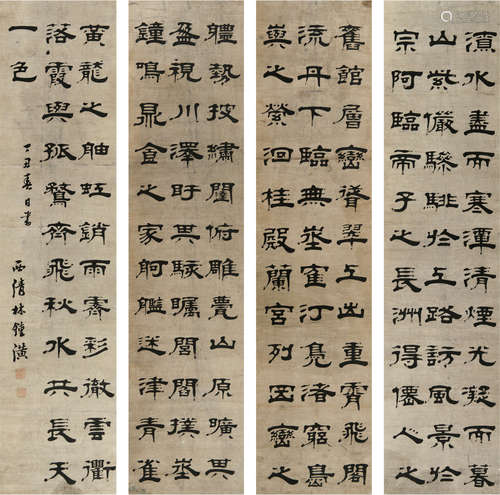 潦水盡而寒潭清煙光凝而暮
山紫儼驂騑於上路訪風景於
宗阿臨帝子之長洲得僊人之
舊館層巒聳翠上出重霄飛閣
流丹下臨無埊寉汀鳧渚窮島
嶼之縈洄桂殿蘭宮列岡巒之
體勢披繡闥俯雕甍山原曠其
盈視川澤盱其駭矚閭閻撲埊
鐘鳴鼎食之家舸艦迷津青雀
黃龍之舳虹銷雨霽彩徹雲衢
落霞與孤鶩齊飛秋水共長天
一色
丁丑春日書
西清林鍾潢